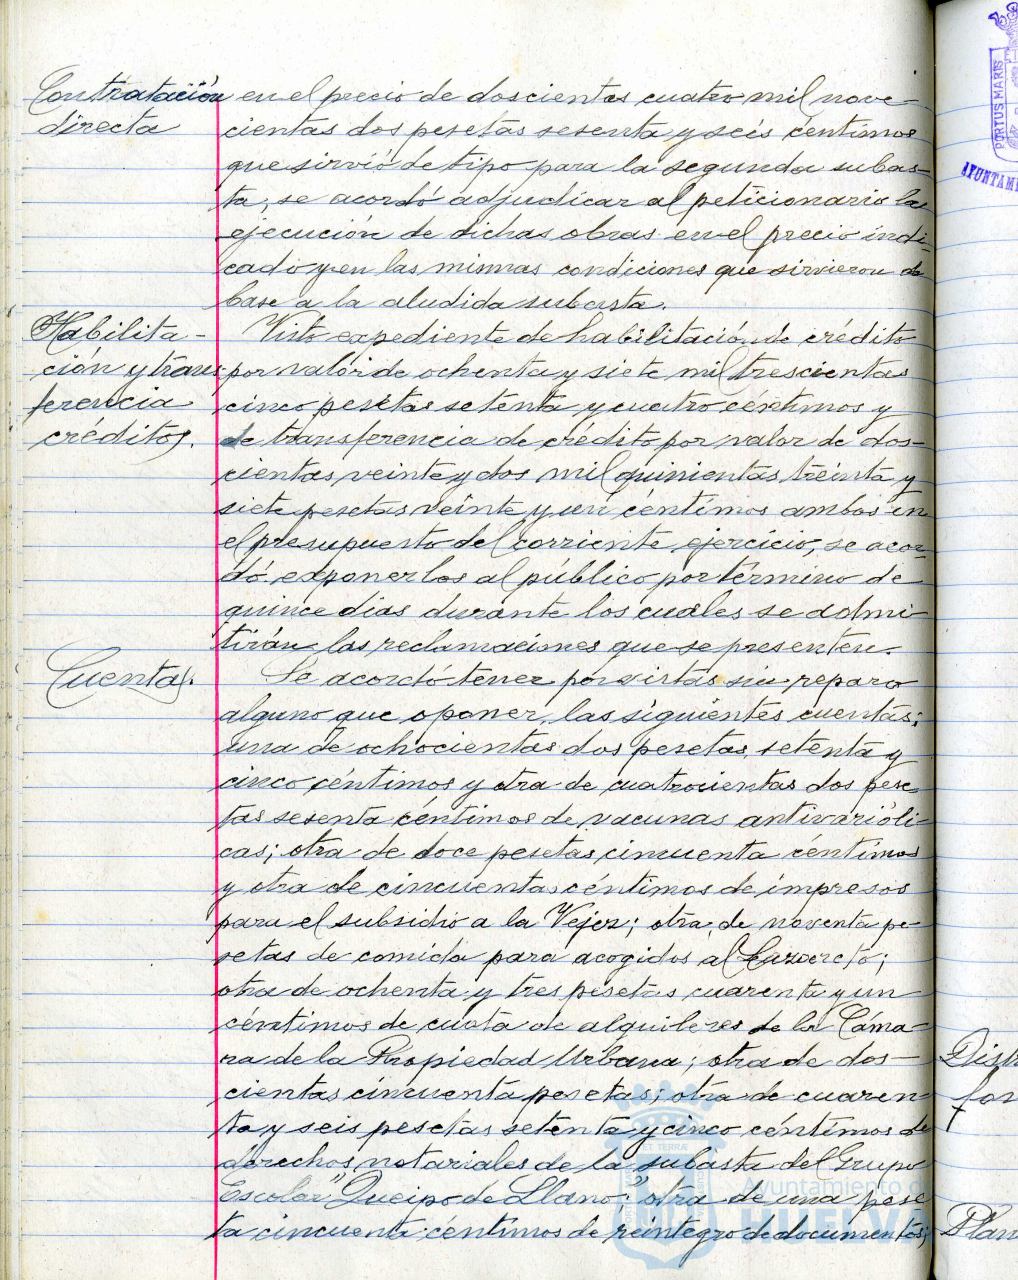 Contratación
directa
en el precio de doscientas cuatro mil nove-
cientas dos pesetas sesenta y seis céntimos
que sirvió de tipo para la segunda subas-
ta, se acordó adjudicar al peticionario la
ejecución de dichas obras en el precio indi-
cado y en las mismas condiciones que sirvieron de
base a la aludida subasta.
Habilita-
ción y trans
ferencia
créditos.
Visto expediente de habilitación de crédito
por valor de ochenta y siete mil trescientas
cinco pesetas setenta y cuatro céntimos y
de transferencia de crédito por valor de dos-
cientas veinte y dos mil quinientas treinta y
siete pesetas veinte y un céntimos ambos en
el presupuesto del corriente ejercicio, se acor-
dó exponerlos al público por término de
quince dias durante los cuales se admi-
tirán las reclamaciones que se presenten.
Cuentas.
Se acordó tener por vistas sin reparo
alguno que oponer, las siguientes cuentas:
una de ochocientas dos pesetas setenta y
cinco céntimos y otra de cuatrocientas dos pese-
tas sesenta céntimos de vacunas antivarióli-
cas; otra de doce pesetas cincuenta céntimos
y otra de cincuenta céntimos de impresos
para el subsidio a la Vejez; otra de noventa pe-
setas de comida para acogidos al Lazareto;
otra de ochenta y tres pesetas cuarenta y un
céntimos de cuota de alquileres de la Cáma-
ra de la Propiedad Urbana; otra de dos-
cientas cincuenta pesetas; otra de cuaren-
ta y seis pesetas setenta y cinco céntimos de
derechos notariales de la subasta del Grupo
Escolar "Queipo de Llano;" otra de una pese
ta cincuenta céntimos de reintegro de documentos;
PORTUS MARIS
AYUNTAMI
Dist
for
Plan
Ayuntamiento de
HUELVA